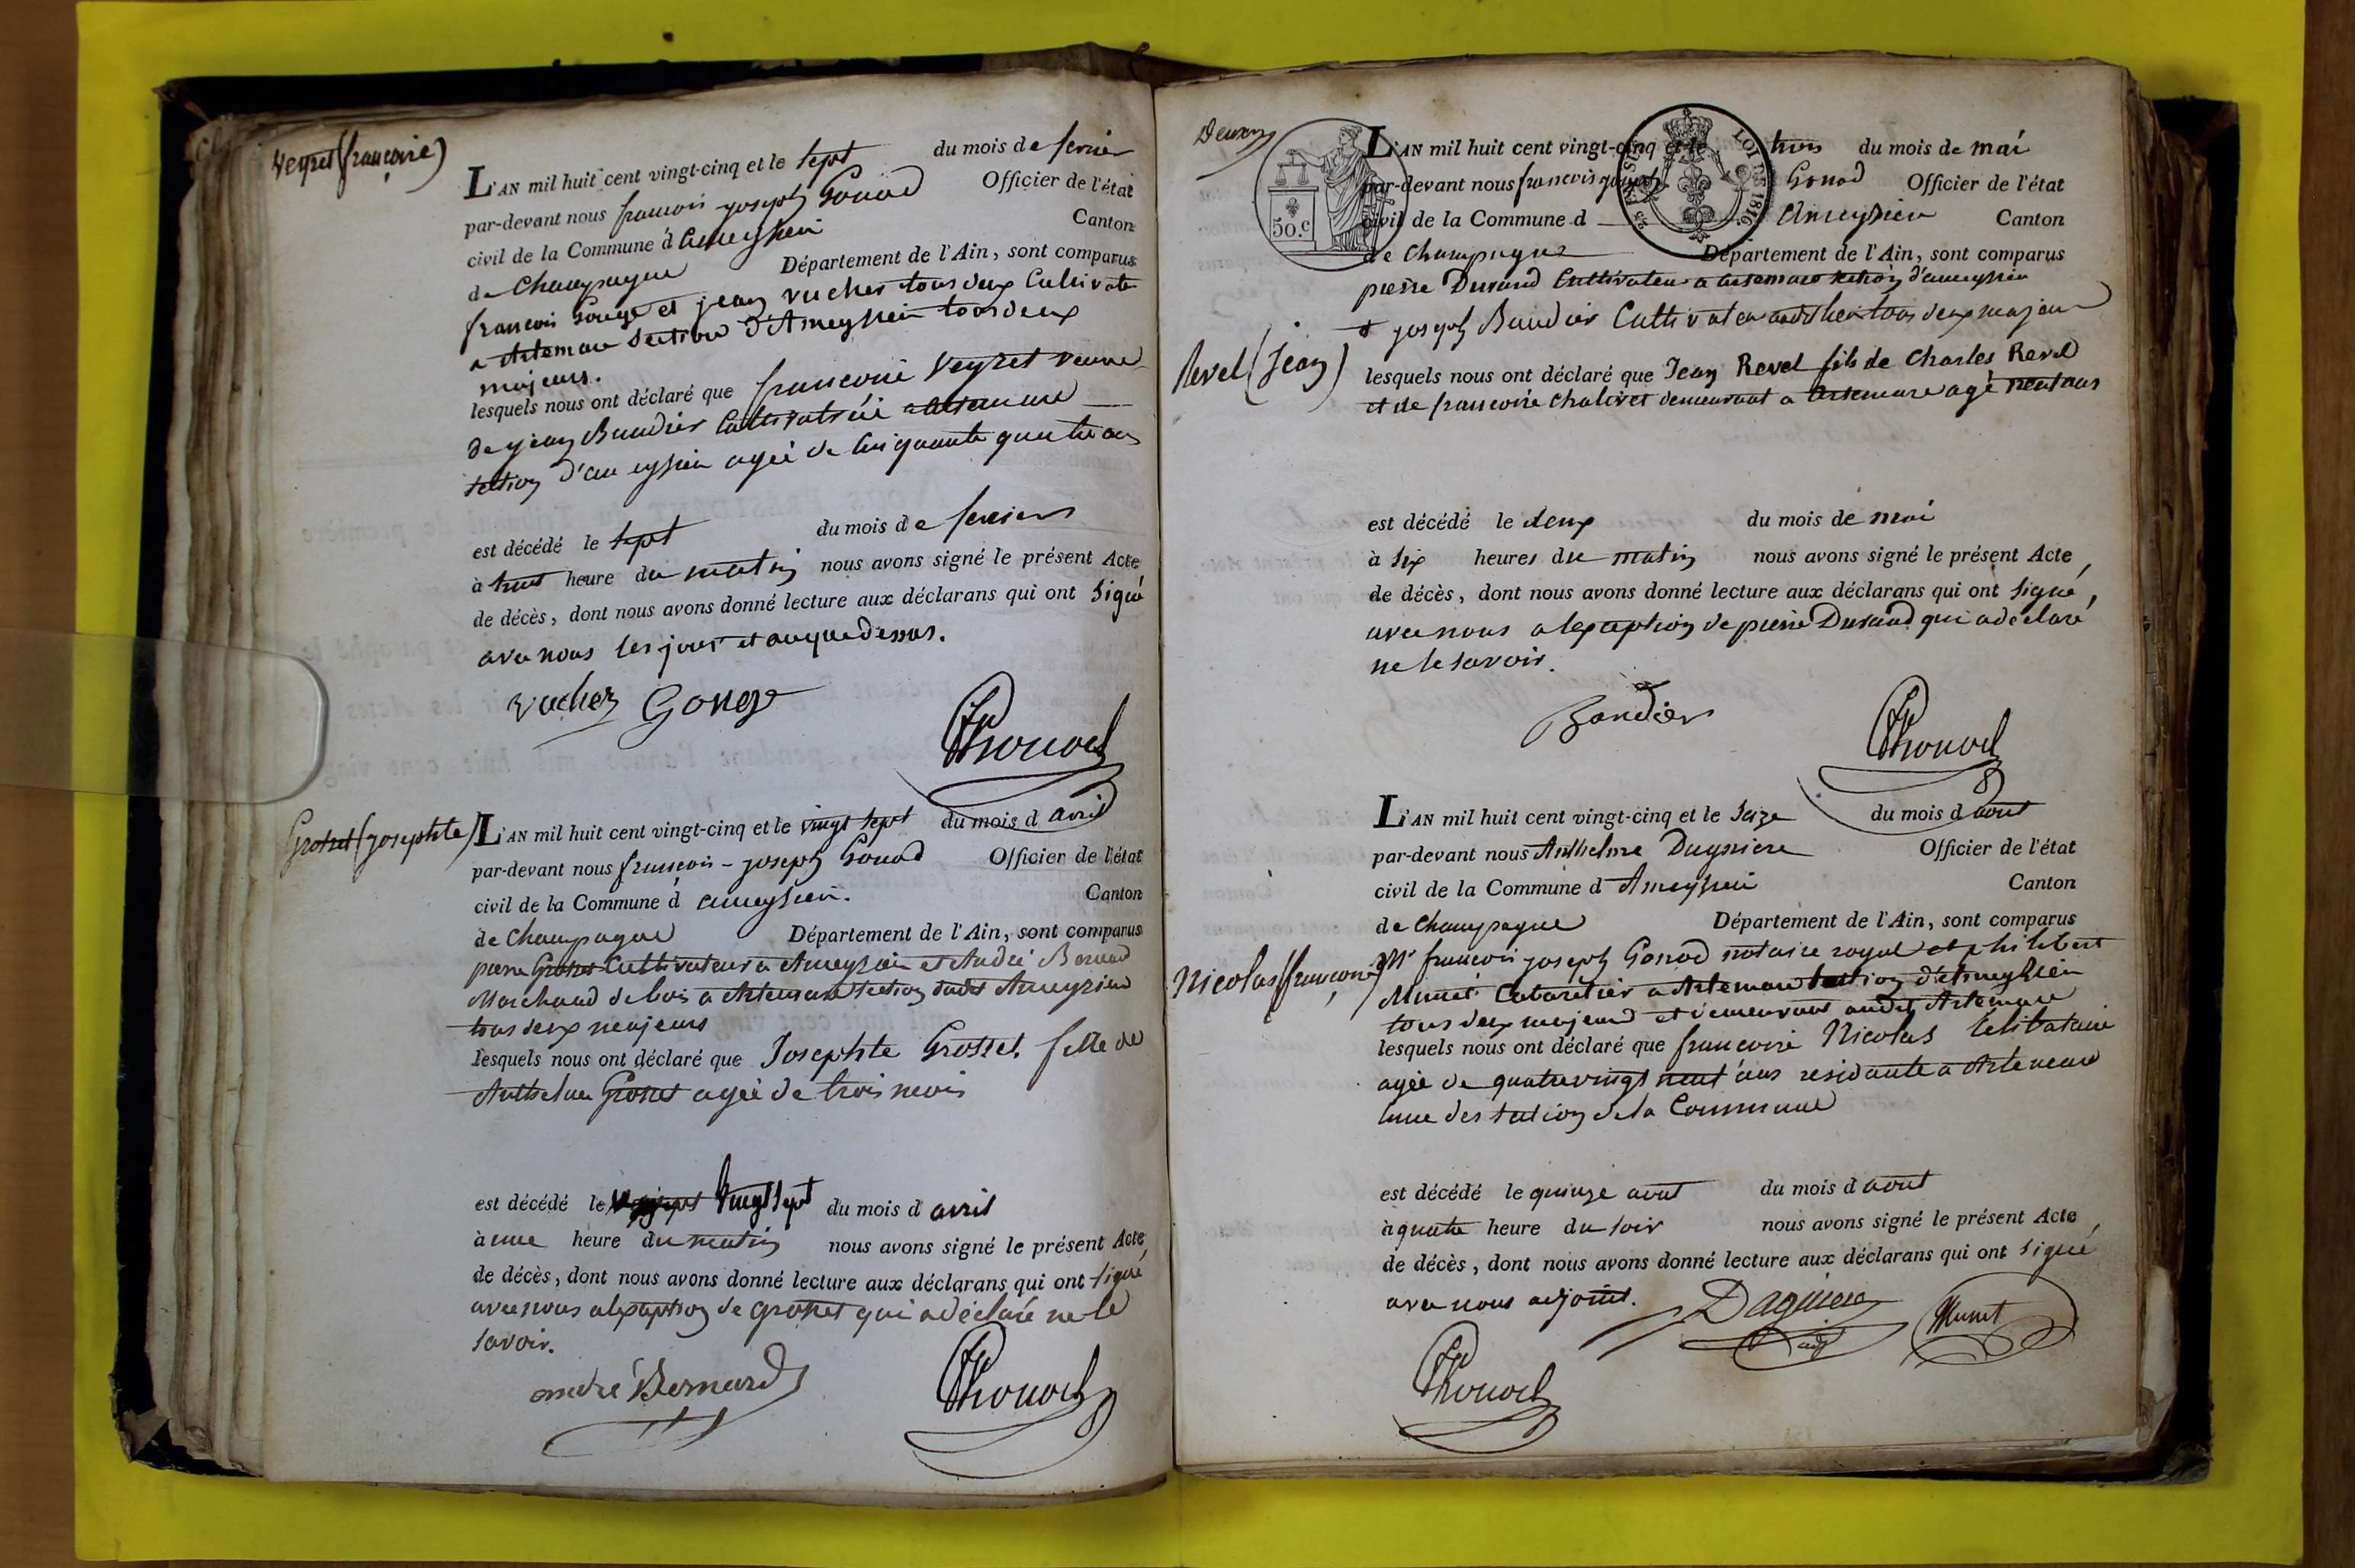 Veyret (françoise)
L'AN mil huit cent vingt-cinq et le sept du mois de fevrier
par-devant nous francois joseph Gonod Officier de l'état
civil de la Commune d'ameyzieu Canton
de Champagne Département de l'Ain, sont comparus
francois Gonge et jean vucher tous deux Cultivate
a Artemare Section d'Ameyzieu tous deux
majeurs.
lesquels nous ont déclaré que francoise Veyret veuve
de jean Baudier Cultivatrice a artemare
section d'ameyzieu agée de cinquante quatre ans
est décédé le sept du mois de fevrier
à huit heure du matin nous avons signé le présent Acte
de décès, dont nous avons donné lecture aux déclarans qui ont signé
avec nous les jour et an que dessus.
vucher Gonge
Gonod
Grosset (josephte)
L'AN mil huit cent vingt-cinq et le vingt sept du mois d avril
par-devant nous francois-joseph Gonod Officier de l'état
civil de la Commune d'ameyzieu. Canton
de Champagne Département de l'Ain, sont comparus
pierre Grosset Cultivateur a Ameyzieu et André Bernard
Marchand de bois a Artemare Section dudt Ameyzieu
tous deux majeurs
lesquels nous ont déclaré que Josephte Grosset. fille de
Anthelme Grosset agée de trois mois
est décédé le vingt sept du mois d avril
à une heure du matin nous avons signé le présent Acte,
de décès, dont nous avons donné lecture aux déclarans qui ont signé
avec nous a lexeption de grosset qui a déclaré ne le
savoir.
andré Bernard
Gonod
Deux
50.c
LOI DE 1816
L'AN mil huit cent vingt-cinq et le trois du mois de mai
par-devant nous francois joseph Gonod Officier de l'état
civil de la Commune d Ameyzieu Canton
de Champagne Département de l'Ain, sont comparus
pierre Durand Cultivateur a artemare section d'ameyzieu
& joseph Baudier Cultivateur audit lieu tous deux majeur
Revel (Jean)
lesquels nous ont déclaré que Jean Revel fils de Charles Revel
et de francoise Chalivet demeurant a Artemare agé neuf ans
est décédé le deux du mois de mai
à six heures du matin nous avons signé le présent Acte,
de décès, dont nous avons donné lecture aux déclarans qui ont signé,
avec nous a lexeption de pierre Durand qui a déclaré
ne le savoir.
Baudier
Gonod
L'AN mil huit cent vingt-cinq et le seize du mois d aout
par-devant nous Anthelme Daguiere Officier de l'état
civil de la Commune d Ameyzieu Canton
de Champagne Département de l'Ain, sont comparus
Nicolas (francoise)
Mr francois joseph Gonod notaire royal et philibert
Munet Cabaretier a Artemare Section d'Ameyzieu
tous deux majeurs et demeurant audit Artemare
lesquels nous ont déclaré que francoise Nicolas Célibataire
agée de quatrevingt neuf ans residante a Artemare
une des section de la Commune
est décédé le quinze aout du mois d aout
à quatre heure du soir nous avons signé le présent Acte,
de décès, dont nous avons donné lecture aux déclarans qui ont signé
avec nous adjoint.
Daguiere
adj
Munet
Gonod